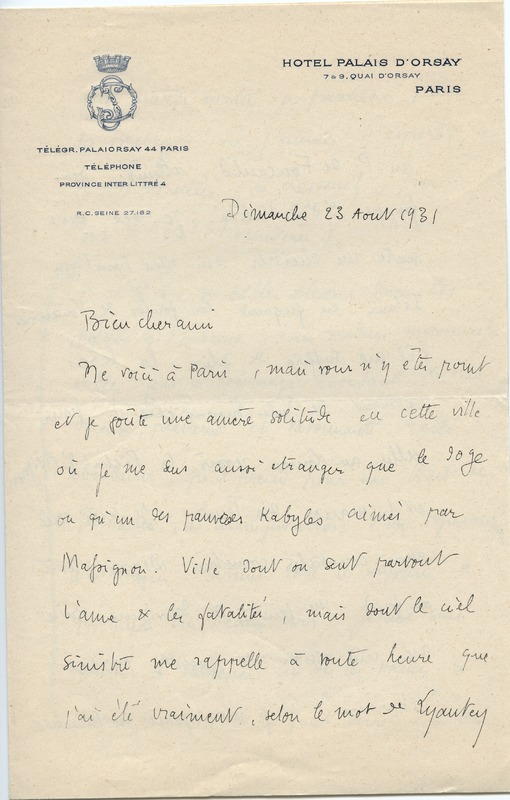 HOTEL PALAIS D'ORSAY
7 & 9, QUAI D'ORSAY
PARIS
TÉLÉGR. PALAIORSAY 44 PARIS
TÉLÉPHONE
PROVINCE INTER LITTRÉ 4
R.C. SEINE 27.182
Dimanche 23 Aout 1931
Bien cher ami
Me voici à Paris, mais vous n'y êtes point
et je goûte une amère solitude en cette ville
où je me sens aussi etranger que le Doge
ou qu'un des pauvres Kabyles aimés par
Massignon. Ville dont on sent partout
l'ame & les fatalités, mais dont le ciel
sinistre me rappelle à toute heure que
j'ai été vraiment, selon le mot de Lyautey